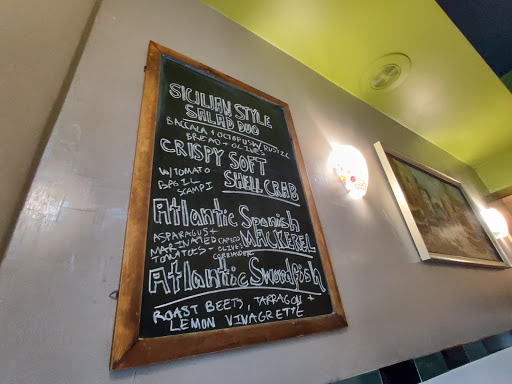 SICILIAN STYLE
SALAD DUO
BACCALA + OCTOPUS W/RUSTIC
BREAD + OLIVES
CRISPY SOFT
SHELL CRAB
W/TOMATO
BASIL
SCAMPI
Atlantic Spanish
MACKEREL
ASPARAGUS +
MARINATED
TOMATOES - OLIVE
CORIANDER
Atlantic Swordfish
ROAST BEETS, TARRAGON +
LEMON VINAGRETTE